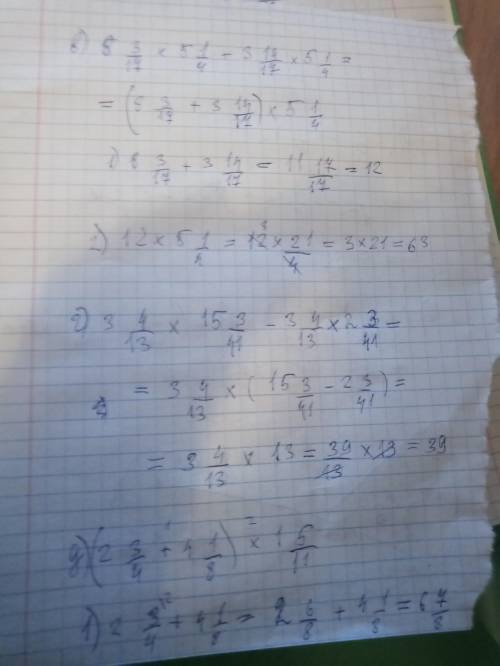 в) 8 3/17 × 5 1/4 + 3 14/17 × 5 1/4 =
= (8 3/17 + 3 14/17) × 5 1/4
1) 8 3/17 + 3 14/17 = 11 17/17 = 12
2) 12 × 5 1/4 = 12 3 × 21/4 = 3 × 21 = 63
г) 3 4/13 × 15 3/41 - 3 4/13 × 2 3/41 =
= 3 4/13 × (15 3/41 - 2 3/41) =
= 3 4/13 × 13 = 39/13 × 13 = 39
д) (2 3/4 +1 4 1/8) ×2 1 5/11
1) 2 3/4 2 + 4 1/8 = 2 6/8 + 4 1/8 = 6 7/8